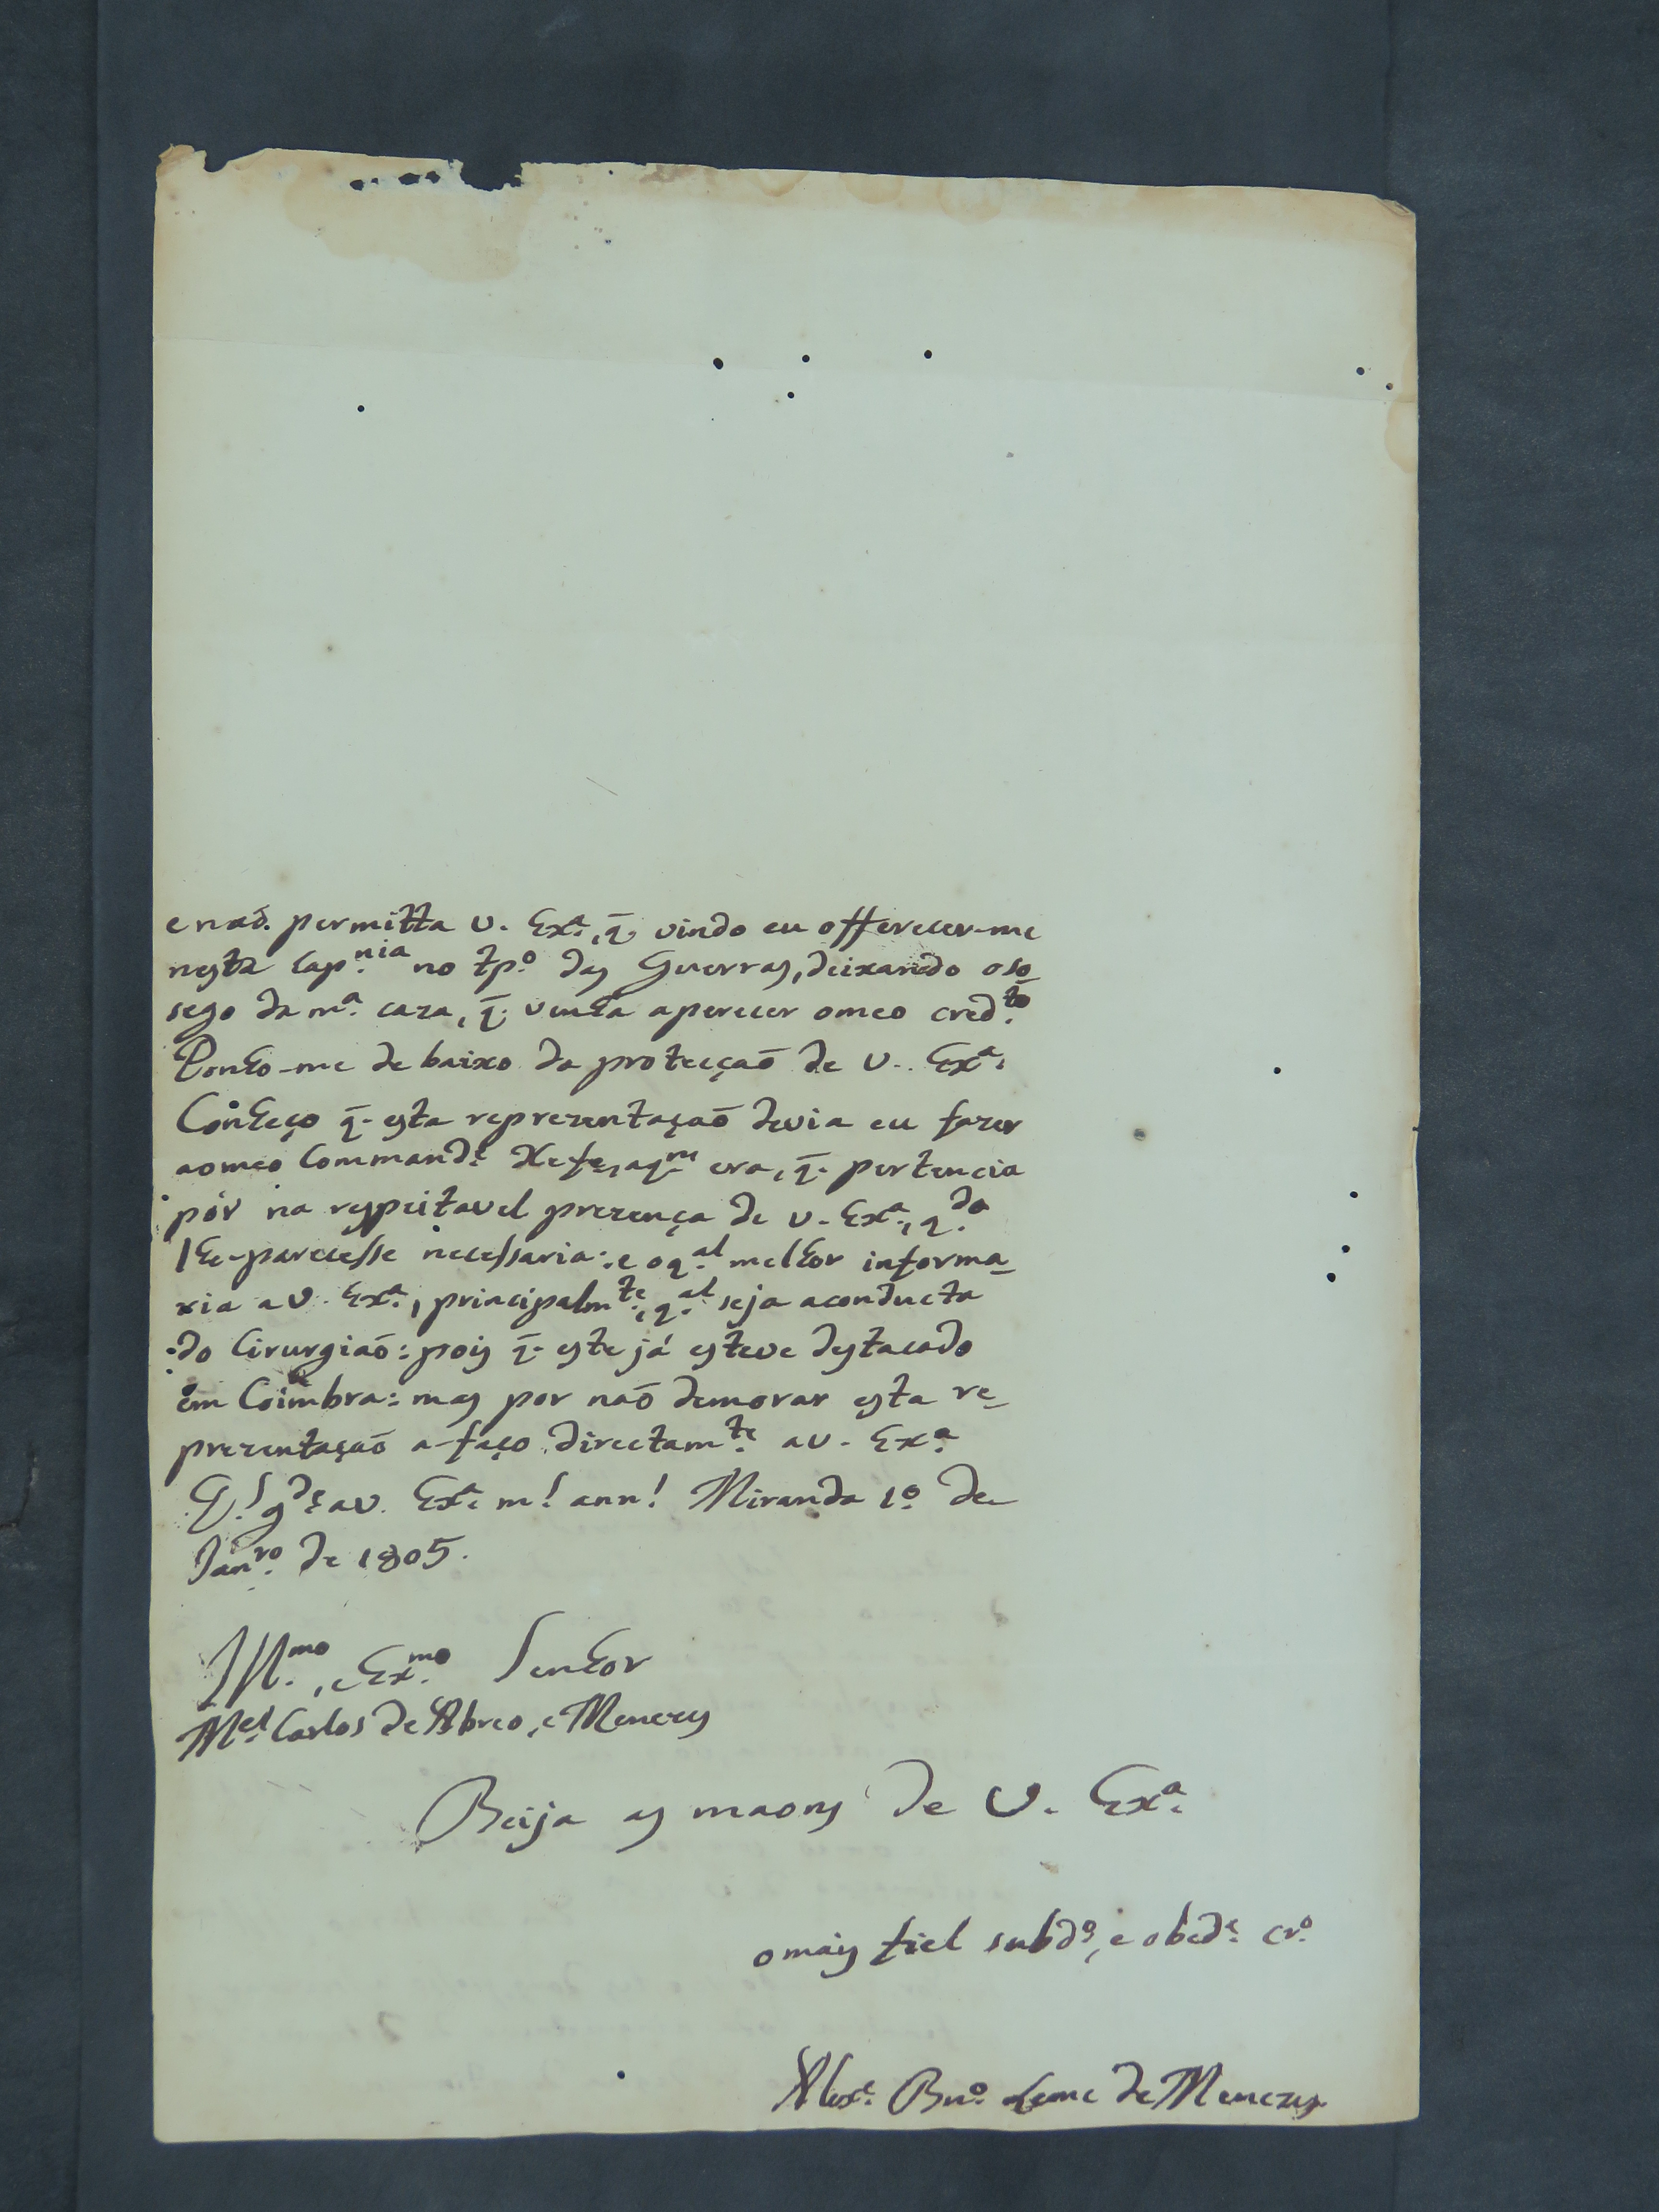 e naõ permitta V. Exª., q̃. vindo eu offerecer-me
nesta Cap.nia no tpº. das Guerras, deixando o so-
sego da mª. caza, q̃. venha a perecer o meo cred.to
Ponho-me de baixo da protecçaõ de V. Exª.
Conheço q̃. esta reprezentaçaõ devia eu fazer
ao meo Command.e Xefe, a q.m era, q̃. pertencia
pôr na respeitavel prezença de V. Exª., q.do
lhe-parecesse necessaria: e o q.al melhor informa-
ria a V. Exª., principalm.te, q.al seja a conducta
do Cirurgiaõ: pois q̃. este já esteve destacado
em Coimbra: mas por naõ demorar esta re-
prezentaçaõ a-faço directam.te a V. Exª.
D.s g.de a V. Exª. m.s ann.s Miranda 1º. de
Jan.ro de 1805.
Ill.mo, e Ex.mo Senhor
M.el Carlos de Abreo, e Menezes
Beija as maons de V. Exª.
o mais fiel subdº., e obed.e crº.
Alex.e Bnº. Leme de Menezes